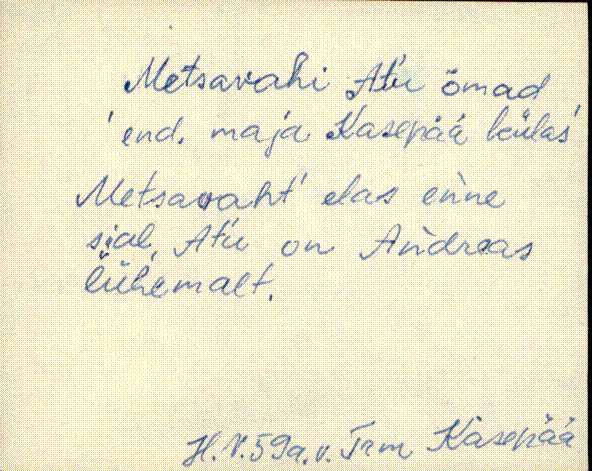 Metsavahi At'u õmad
'end. maja Kasepää külas'
Metsavaht' elas enne
siäl, At'u on Andreas
lühemalt.
H.V. 59a.v. Trm Kasepää